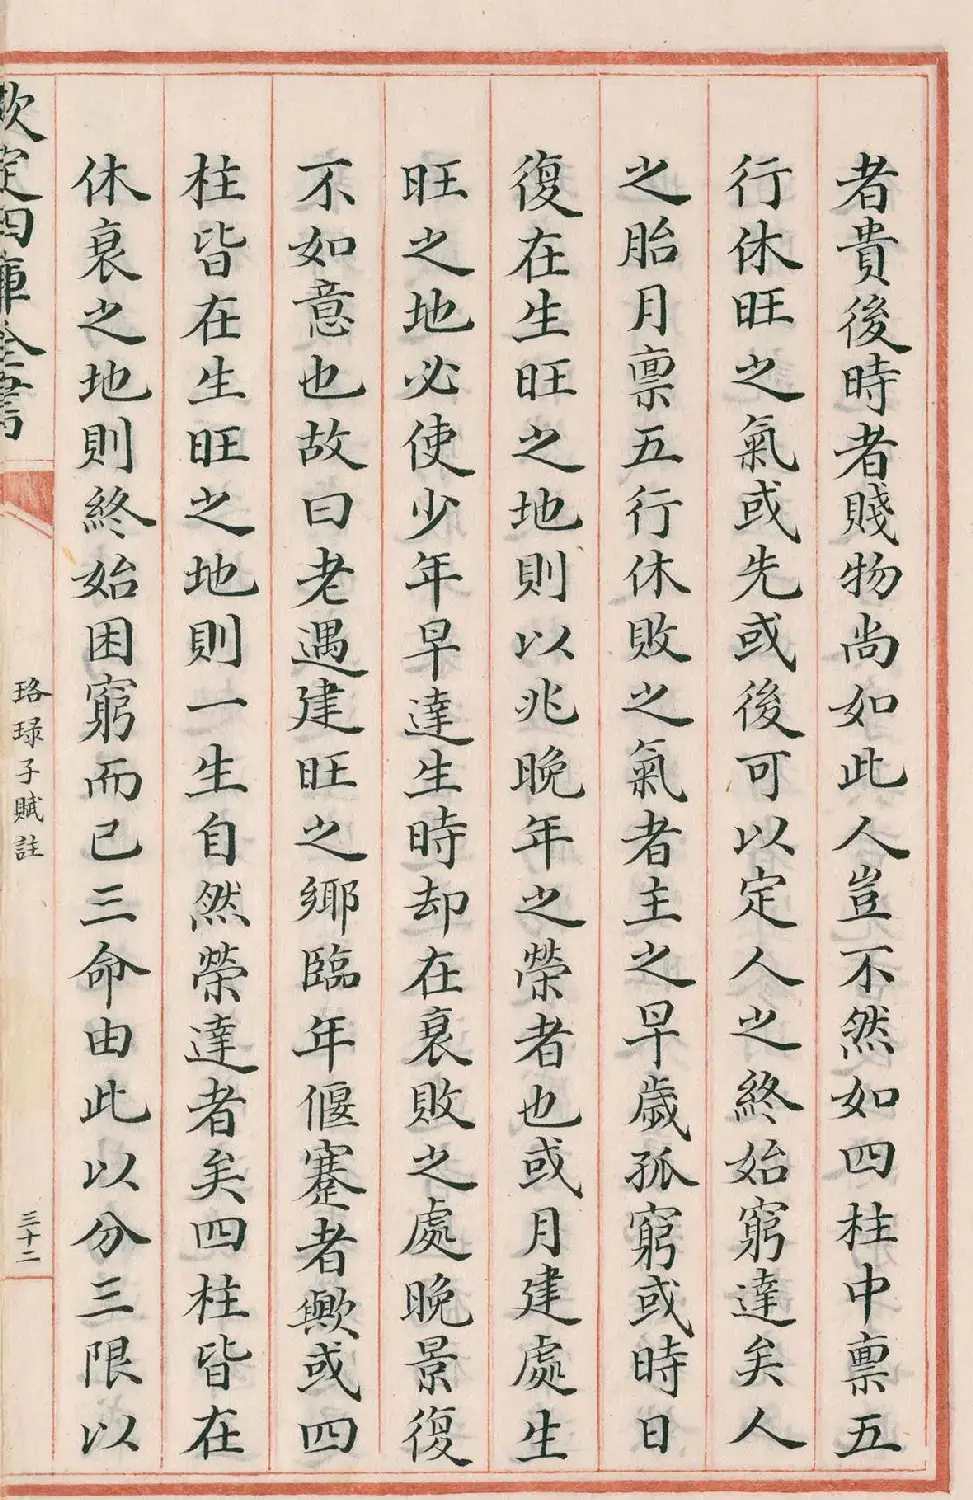 者貴後時者賤物尚如此人豈不然如四柱中禀五
行休旺之氣或先或後可以定人之終始窮達矣人
之胎月禀五行休敗之氣者主之早歲孤窮或時日
復在生旺之地則以兆晚年之榮者也或月建處生
旺之地必使少年早達生時却在衰敗之處晚景復
不如意也故曰老遇建旺之鄉臨年偃蹇者歟或四
柱皆在生旺之地則一生自然榮達者矣四柱皆在
休衰之地則終始困窮而已三命由此以分三限以
欽定四庫全書
珞琭子賦註
三十二